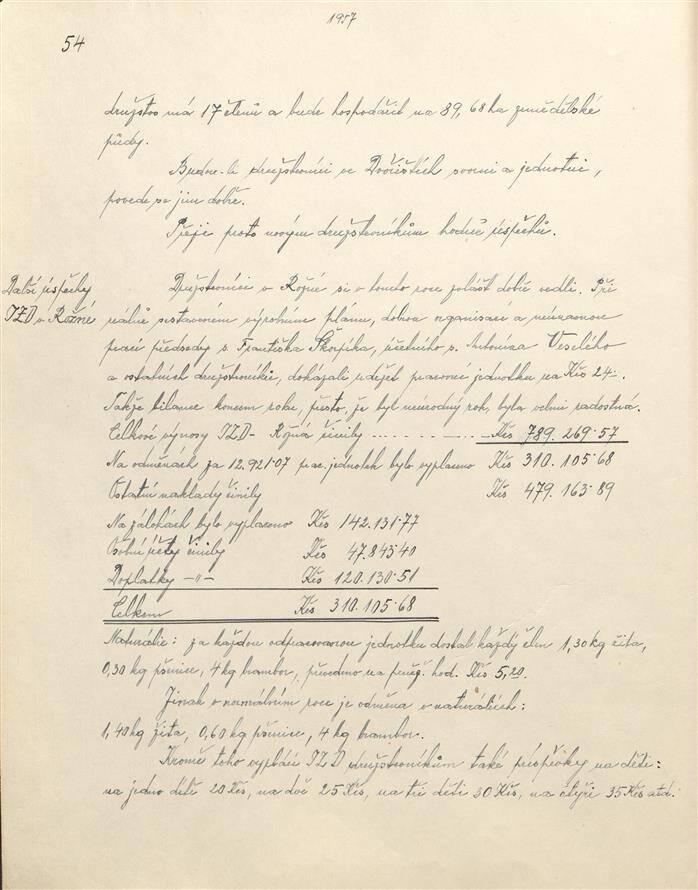 1957
54
družstvo má 17 členů a bude hospodařit na 89,68 ha zemědělské
půdy.
Budou-li družstevníci ve Dvořištích svorni a jednotni,
povede se jim dobře.
Přeji proto novým družstevníkům hodně úspěchů.
Další úspěchy
JZD v Rožné
Družstevníci v Rožné si v tomto roce zvlášť dobře vedli. Při
reálně sestaveném výrobním plánu, dobrou organisací a neúnavnou
prací předsedy s. Františka Škorpíka, účetního s. Antonína Veselého
a ostatních družstevníků, dokázali udržet pracovní jednotku na Kčs 24.-.
Takže bilance koncem roku, přesto, že byl neúrodný rok, byla velmi radostná.
Celkové výnosy JZD - Rožná činily ... Kčs 789.269·57
Na odměnách za 12.921·07 prac. jednotek bylo vyplaceno Kčs 310.105·68
Ostatní náklady činily Kčs 479.163·89
Na zálohách bylo vyplaceno Kčs 142.131·77
Osobní účty činily Kčs 47.843·40
Doplatky -"- Kčs 120.130·51
Celkem Kčs 310.105·68
Naturálie: za každou odpracovanou jednotku dostal každý člen 1,30 kg žita,
0,30 kg pšenice, 4 kg brambor, převedeno na peněž. hod. Kčs 5,20.
Jinak v normálním roce je odměna v naturáliích:
1,40 kg žita, 0,60 kg pšenice, 4 kg brambor.
Kromě toho vyplácí JZD družstevníkům také příspěvky na děti:
na jedno dítě 20 Kčs, na dvě 25 Kčs, na tři děti 30 Kčs, na čtyři 35 Kčs atd.